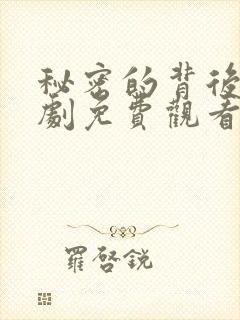 秘密的背後
劇免費觀看
羅啓銳